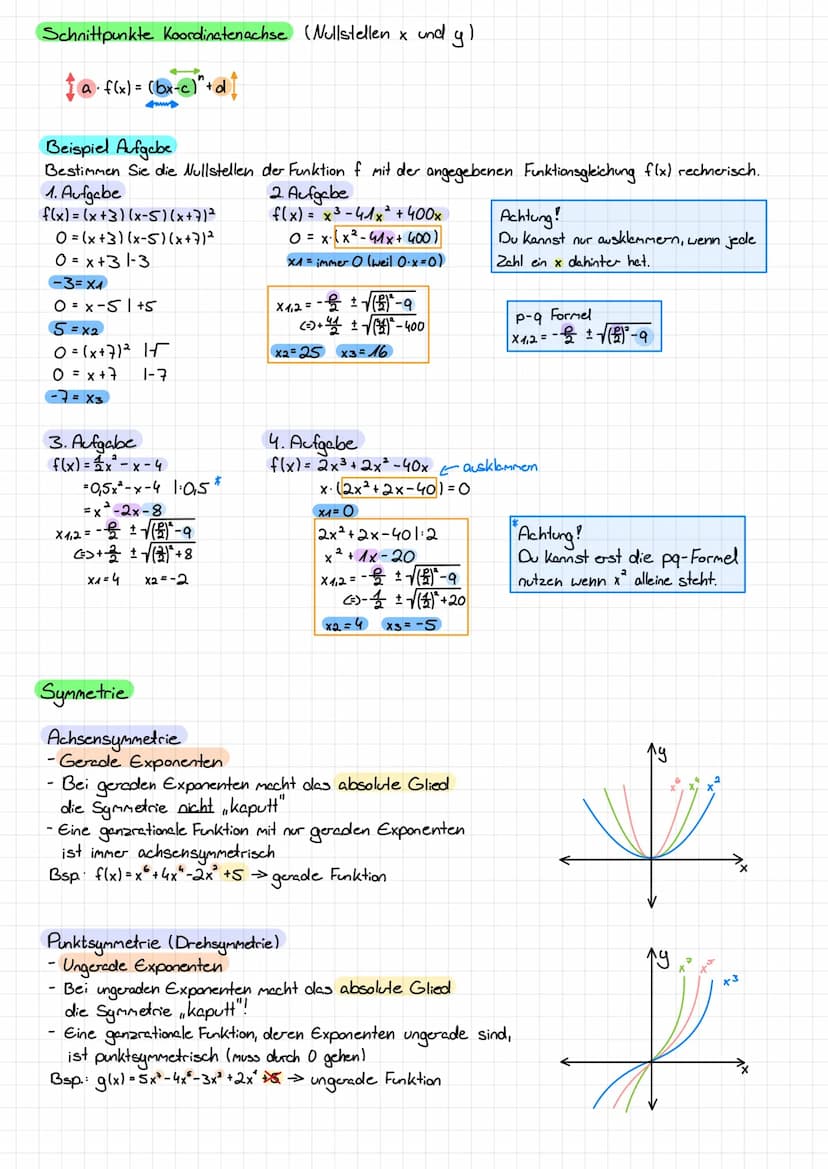 Schnittpunkte Koordinatenachse (Nullstellen x und y)
a · f(x) = (bx-c)ⁿ + d
Beispiel Aufgabe
Bestimmen Sie die Nullstellen der Funktion f mit der angegebenen Funktionsgleichung f(x) rechnerisch.
1. Aufgabe
f(x) = (x+3)(x-5)(x+7)²
0 = (x+3)(x-5)(x+7)²
0 = x+3 |-3
-3 = x1
0 = x-5 |+5
5 = x2
0 = (x+7)² |√
0 = x+7 |-7
-7 = x3
2. Aufgabe
f(x) = x³ - 41x² + 400x
0 = x·(x² - 41x + 400)
x1 = immer 0 (weil 0·x=0)
x1,2 = -p/2 ± √((p/2)² - q)
<=> + 41/2 ± √((41/2)² - 400)
x2 = 25 x3 = 16
Achtung!
Du kannst nur ausklammern, wenn jede
Zahl ein x dahinter hat.
p-q Formel
x1,2 = -p/2 ± √((p/2)² - q)
3. Aufgabe
f(x) = 1/2x² - x - 4
= 0,5x² - x - 4 |:0,5 *
= x² - 2x - 8
x1,2 = -p/2 ± √((p/2)² - q)
<=> + 2/2 ± √((2/2)² + 8)
x1 = 4 x2 = -2
4. Aufgabe
f(x) = 2x³ + 2x² - 40x ← ausklammern
x·(2x² + 2x - 40) = 0
x1 = 0
2x² + 2x - 40 |:2
x² + 1x - 20
x1,2 = -p/2 ± √((p/2)² - q)
<=> - 1/2 ± √((1/2)² + 20)
x2 = 4 x3 = -5
* Achtung!
Du kannst erst die pq-Formel
nutzen wenn x² alleine steht.
Symmetrie
Achsensymmetrie
- Gerade Exponenten
- Bei geraden Exponenten macht das absolute Glied
die Symmetrie nicht „kaputt"
- Eine ganzrationale Funktion mit nur geraden Exponenten
ist immer achsensymmetrisch
Bsp: f(x) = x⁶ + 4x⁴ - 2x² + 5 → gerade Funktion
y
x⁶ x⁴ x²
x
Punktsymmetrie (Drehsymmetrie)
- Ungerade Exponenten
- Bei ungeraden Exponenten macht das absolute Glied
die Symmetrie „kaputt"!
- Eine ganzrationale Funktion, deren Exponenten ungerade sind,
ist punktsymmetrisch (muss durch 0 gehen)
Bsp.: g(x) = 5x - 4x - 3x³ + 2x¹ +5 → ungerade Funktion
y
x⁷ x⁵ x³
x